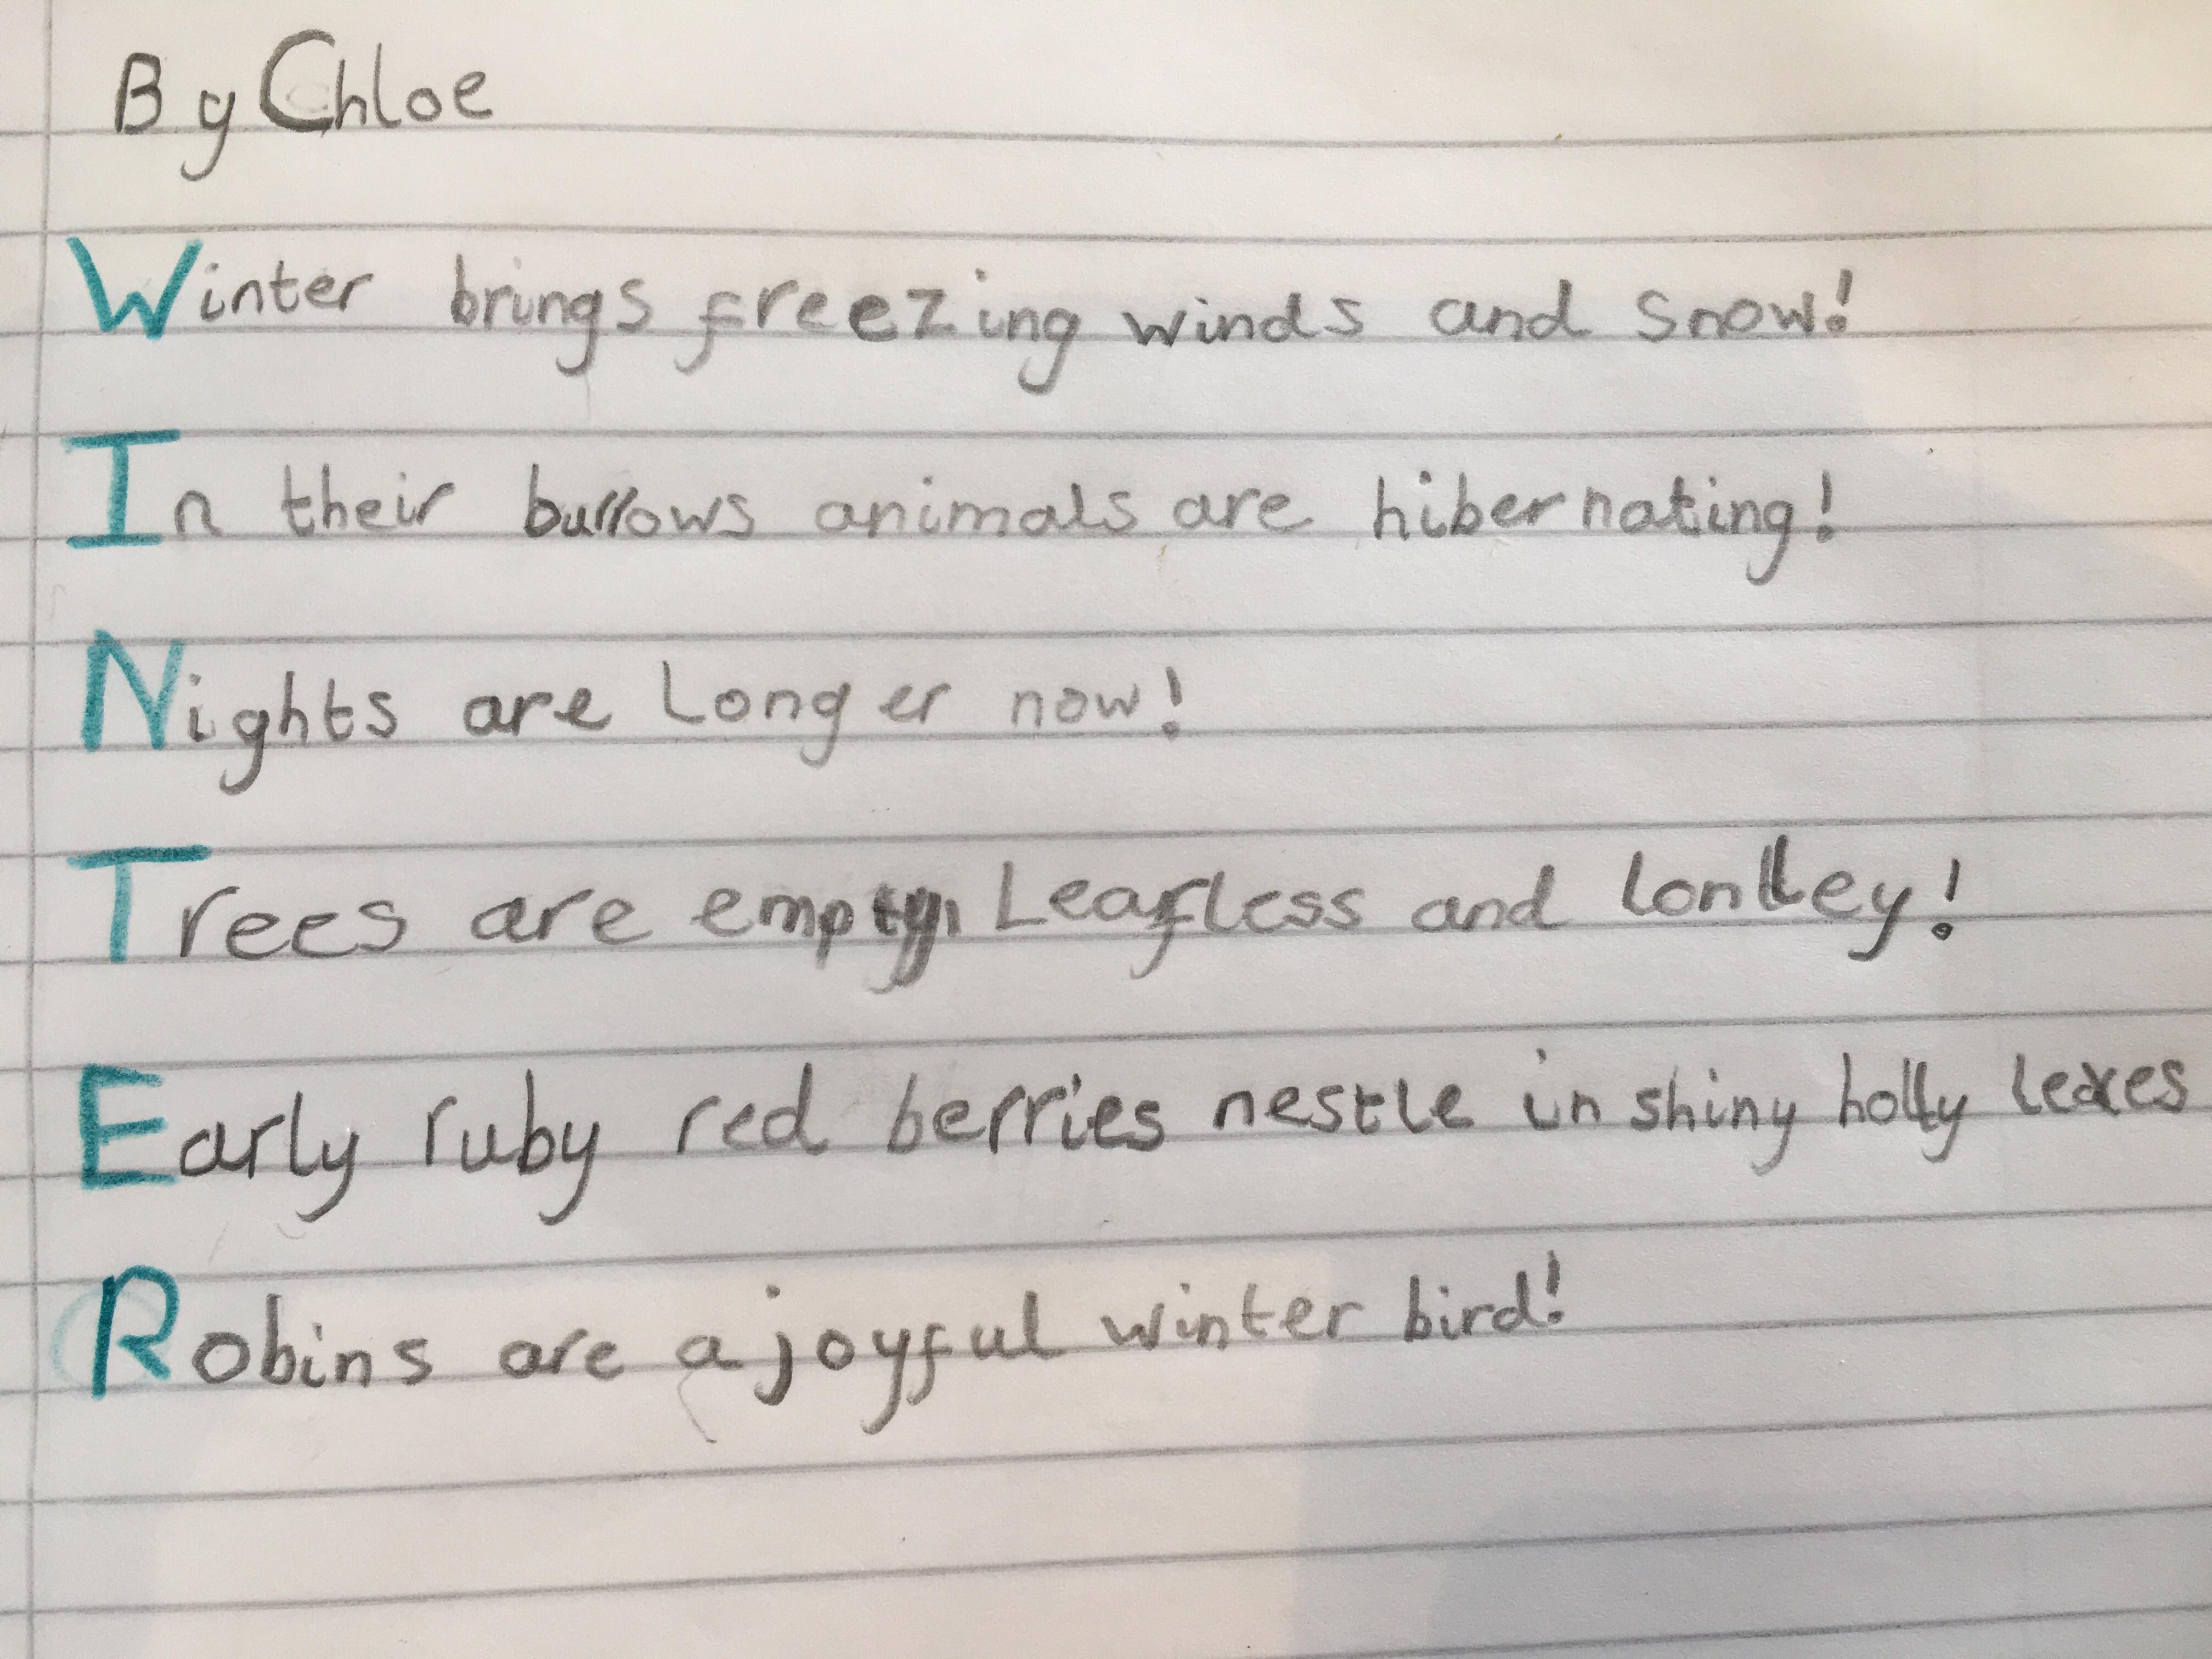 By Chloe
Winter brings freezing winds and snow!
In their burrows animals are hibernating!
Nights are Longer now!
Trees are empty, Leafless and lonlley!
Early ruby red berries nestle in shiny holly leaves
Robins are a joyful winter bird!